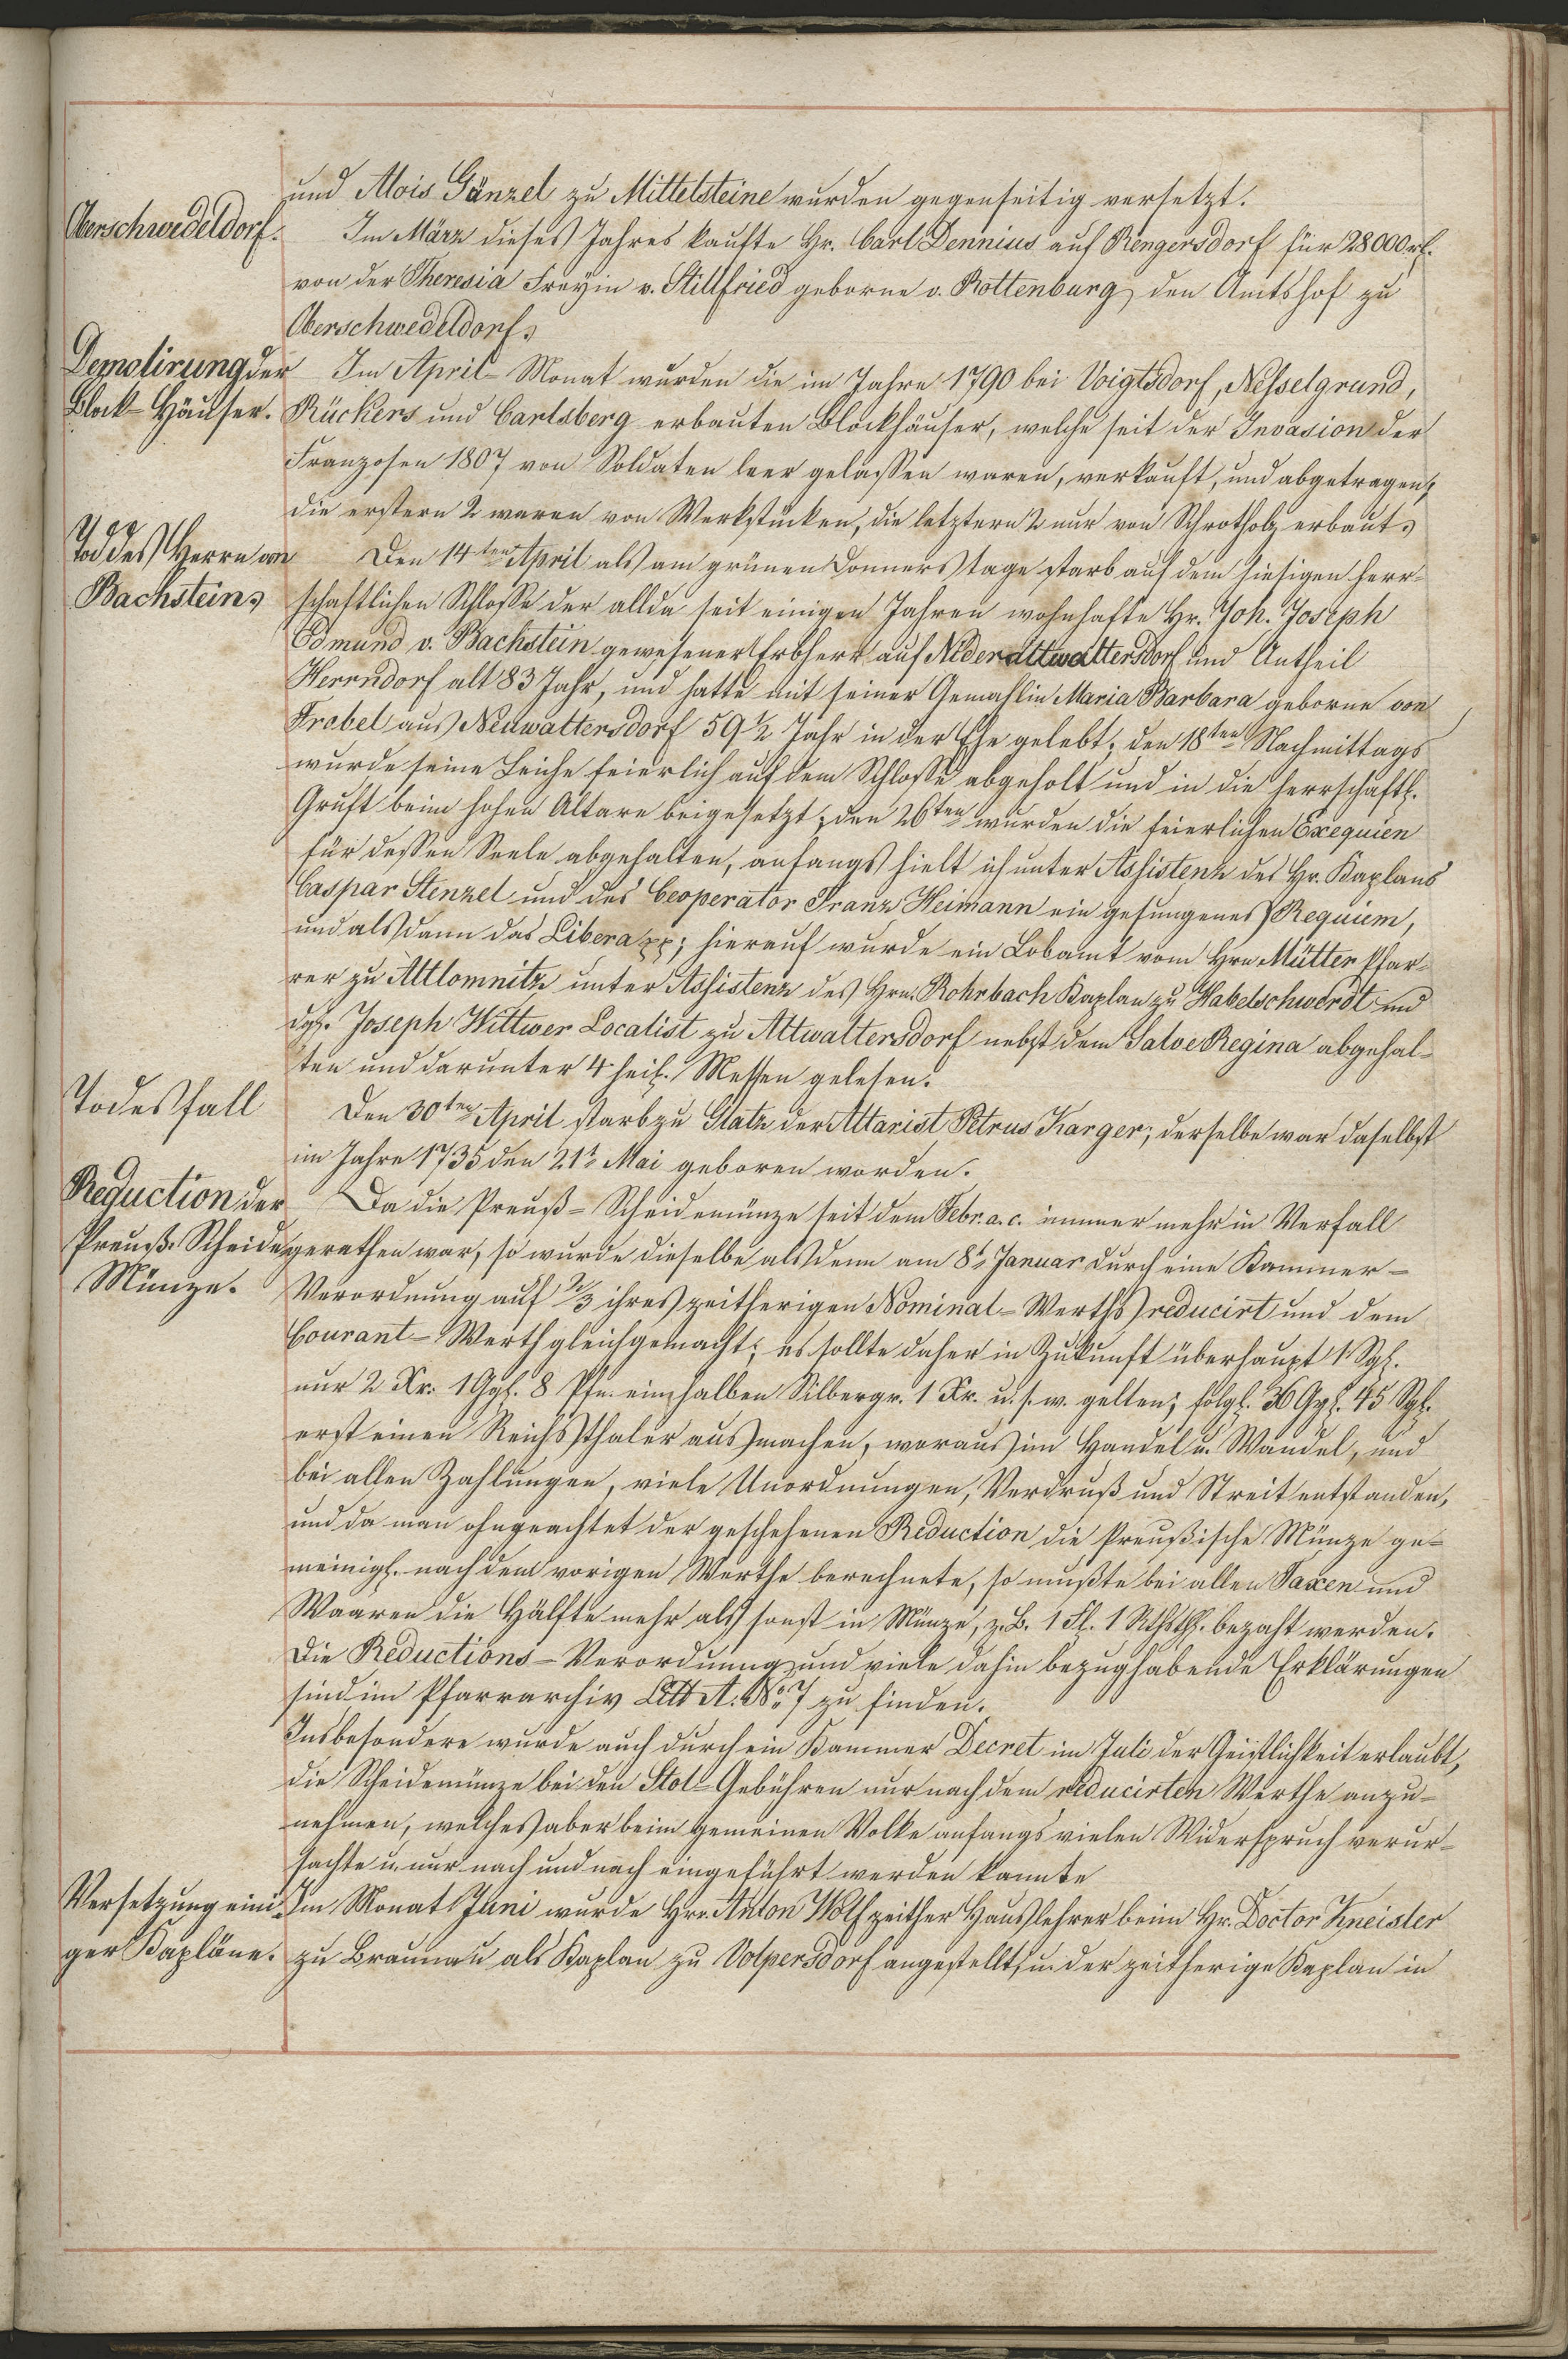 und Alois Gänzel zu Mittelsteine wurden gegenseitig versetzt.
Oberschwedeldorf.
Im März dieses Jahres kaufte Hr. Carl Dennius auf Rengersdorf für 28000 rl.
von der Theresia Freyin v. Stillfried geborne v. Rottenburg den Amtshof zu
Oberschwedeldorf.
Demolirung der
Block-Häuser.
Im April-Monat wurden die im Jahre 1790 bei Voigtsdorf, Nesselgrund,
Rückers und Carlsberg erbauten Blockhäuser, welche seit der Invasion der
Franzosen 1807 von Soldaten leer gelassen waren, verkauft, und abgetragen;
die erstern 2 waren von Werkstücken, die letztern 2 nur von Schrotholz erbaut.
Tod des Herrn von
Bachstein.
Den 14ten April als am grünen Donnerstage starb auf dem hiesigen herr-
schaftlichen Schlosse der allda seit einigen Jahren wohnhafte Hr. Joh. Joseph
Edmund v. Bachstein gewesener Erbherr auf Niederaltwaltersdorf und Antheil
Herrndorf alt 83 Jahr, und hatte mit seiner Gemahlin Maria Barbara geborne von
Frobel aus Neuwaltersdorf 59 1/2 Jahr in der Ehe gelebt; den 18ten Nachmittags
wurde seine Leiche feierlich auf dem Schlosse abgeholt und in die herrschaftl.
Gruft beim hohen Altare beigesetzt; den 26ten wurden die feierlichen Exequien
für dessen Seele abgehalten, anfangs hielt ich unter Assistenz des Hr. Kaplans
Caspar Stenzel und des Cooperator Franz Heimann ein gesungenes Requiem,
und alsdann das Libera pp; hierauf wurde ein Lobamt vom Hrn Mütter Pfar-
rer zu Altlomnitz unter Assistenz des Hrn. Rohrbach Kaplan zu Habelschwerdt und
dgl. Joseph Wittwer Localist zu Altwaltersdorf nebst dem Salve Regina abgehal-
ten und darunter 4 heil. Messen gelesen.
Todesfall
Den 30ten April starb zu Glatz der Altarist Petrus Karger; derselbe war daselbst
im Jahre 1735 den 21t. Mai geboren worden.
Reduction der
Preuß. Scheide
Münze.
Da die Preuß-Scheidemünze seit dem Febr. a. c. immer mehr in Verfall
gerathen war, so wurde dieselbe alsdenn am 8t. Januar durch eine Kammer-
Verordnung auf 2/3 ihres zeitherigen Nominal-Werths reducirt und dem
Courant-Werth gleichgemacht; es sollte daher in Zukunft überhaupt 1 Sgl.
nur 2 Xr. 1 Ggl. 8 Pfn. einhalben Silbergr. 1 Xr. u. s. w. gelten; folgl. 36 Ggl. 45 Sgl.
erst einen Reichsthaler ausmachen, woraus im Handel u. Wandel, und
bei allen Zahlungen, viele Unordnungen, Verdruß und Streit entstanden,
und da man ohngeachtet der geschehenen Reduction die Preußische Münze ge-
meinigl. nach dem vorigen Werthe berechnete, so mußte bei allen Taxen und
Waaren die Hälfte mehr als sonst in Münze, z. B. 1 Fl. 1 Rthsthl. bezahlt werden.
Die Reductions-Verordnung und viele dahin bezughabende Erklärungen
sind im Pfarrarchiv Litt A. No. 7 zu finden.
Insbesondere wurde auch durch ein Kammer Decret im Juli der Geistlichkeit erlaubt,
die Scheidemünze bei den Stol-Gebühren nur nach dem reducirten Werthe anzu-
nehmen, welches aber beim gemeinen Volke anfangs vielen Widerspruch verur-
sachte u. nur nach und nach eingeführt werden kannte
Versetzung eini-
ger Kapläne.
Im Monat Juni wurde Hrr. Anton Wolf zeither Hauslehrer beim Hr. Doctor Kneisler
zu Braunau als Kaplan zu Volpersdorf angestellt, u. der zeitherige Kaplan in